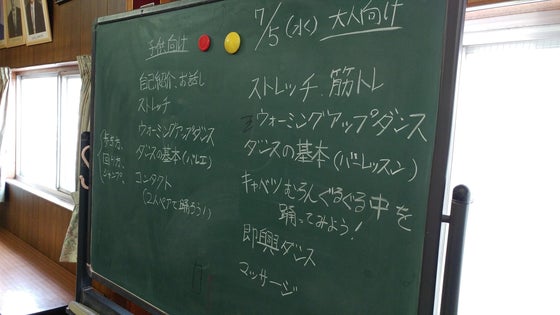 子供向け
自己紹介、お話し
ストレッチ
ウォーミングアップダンス
ダンスの基本(バレエ)
回り方、
ジャンプ、
コンタクト
(2人ペアで踊ろう!)
7/5(水) 大人向け
ストレッチ、筋トレ
ウォーミングアップダンス
ダンスの基本(バーレッスン)
キャベツむろんぐるぐる中を
踊ってみよう!
即興ダンス
マッサージ